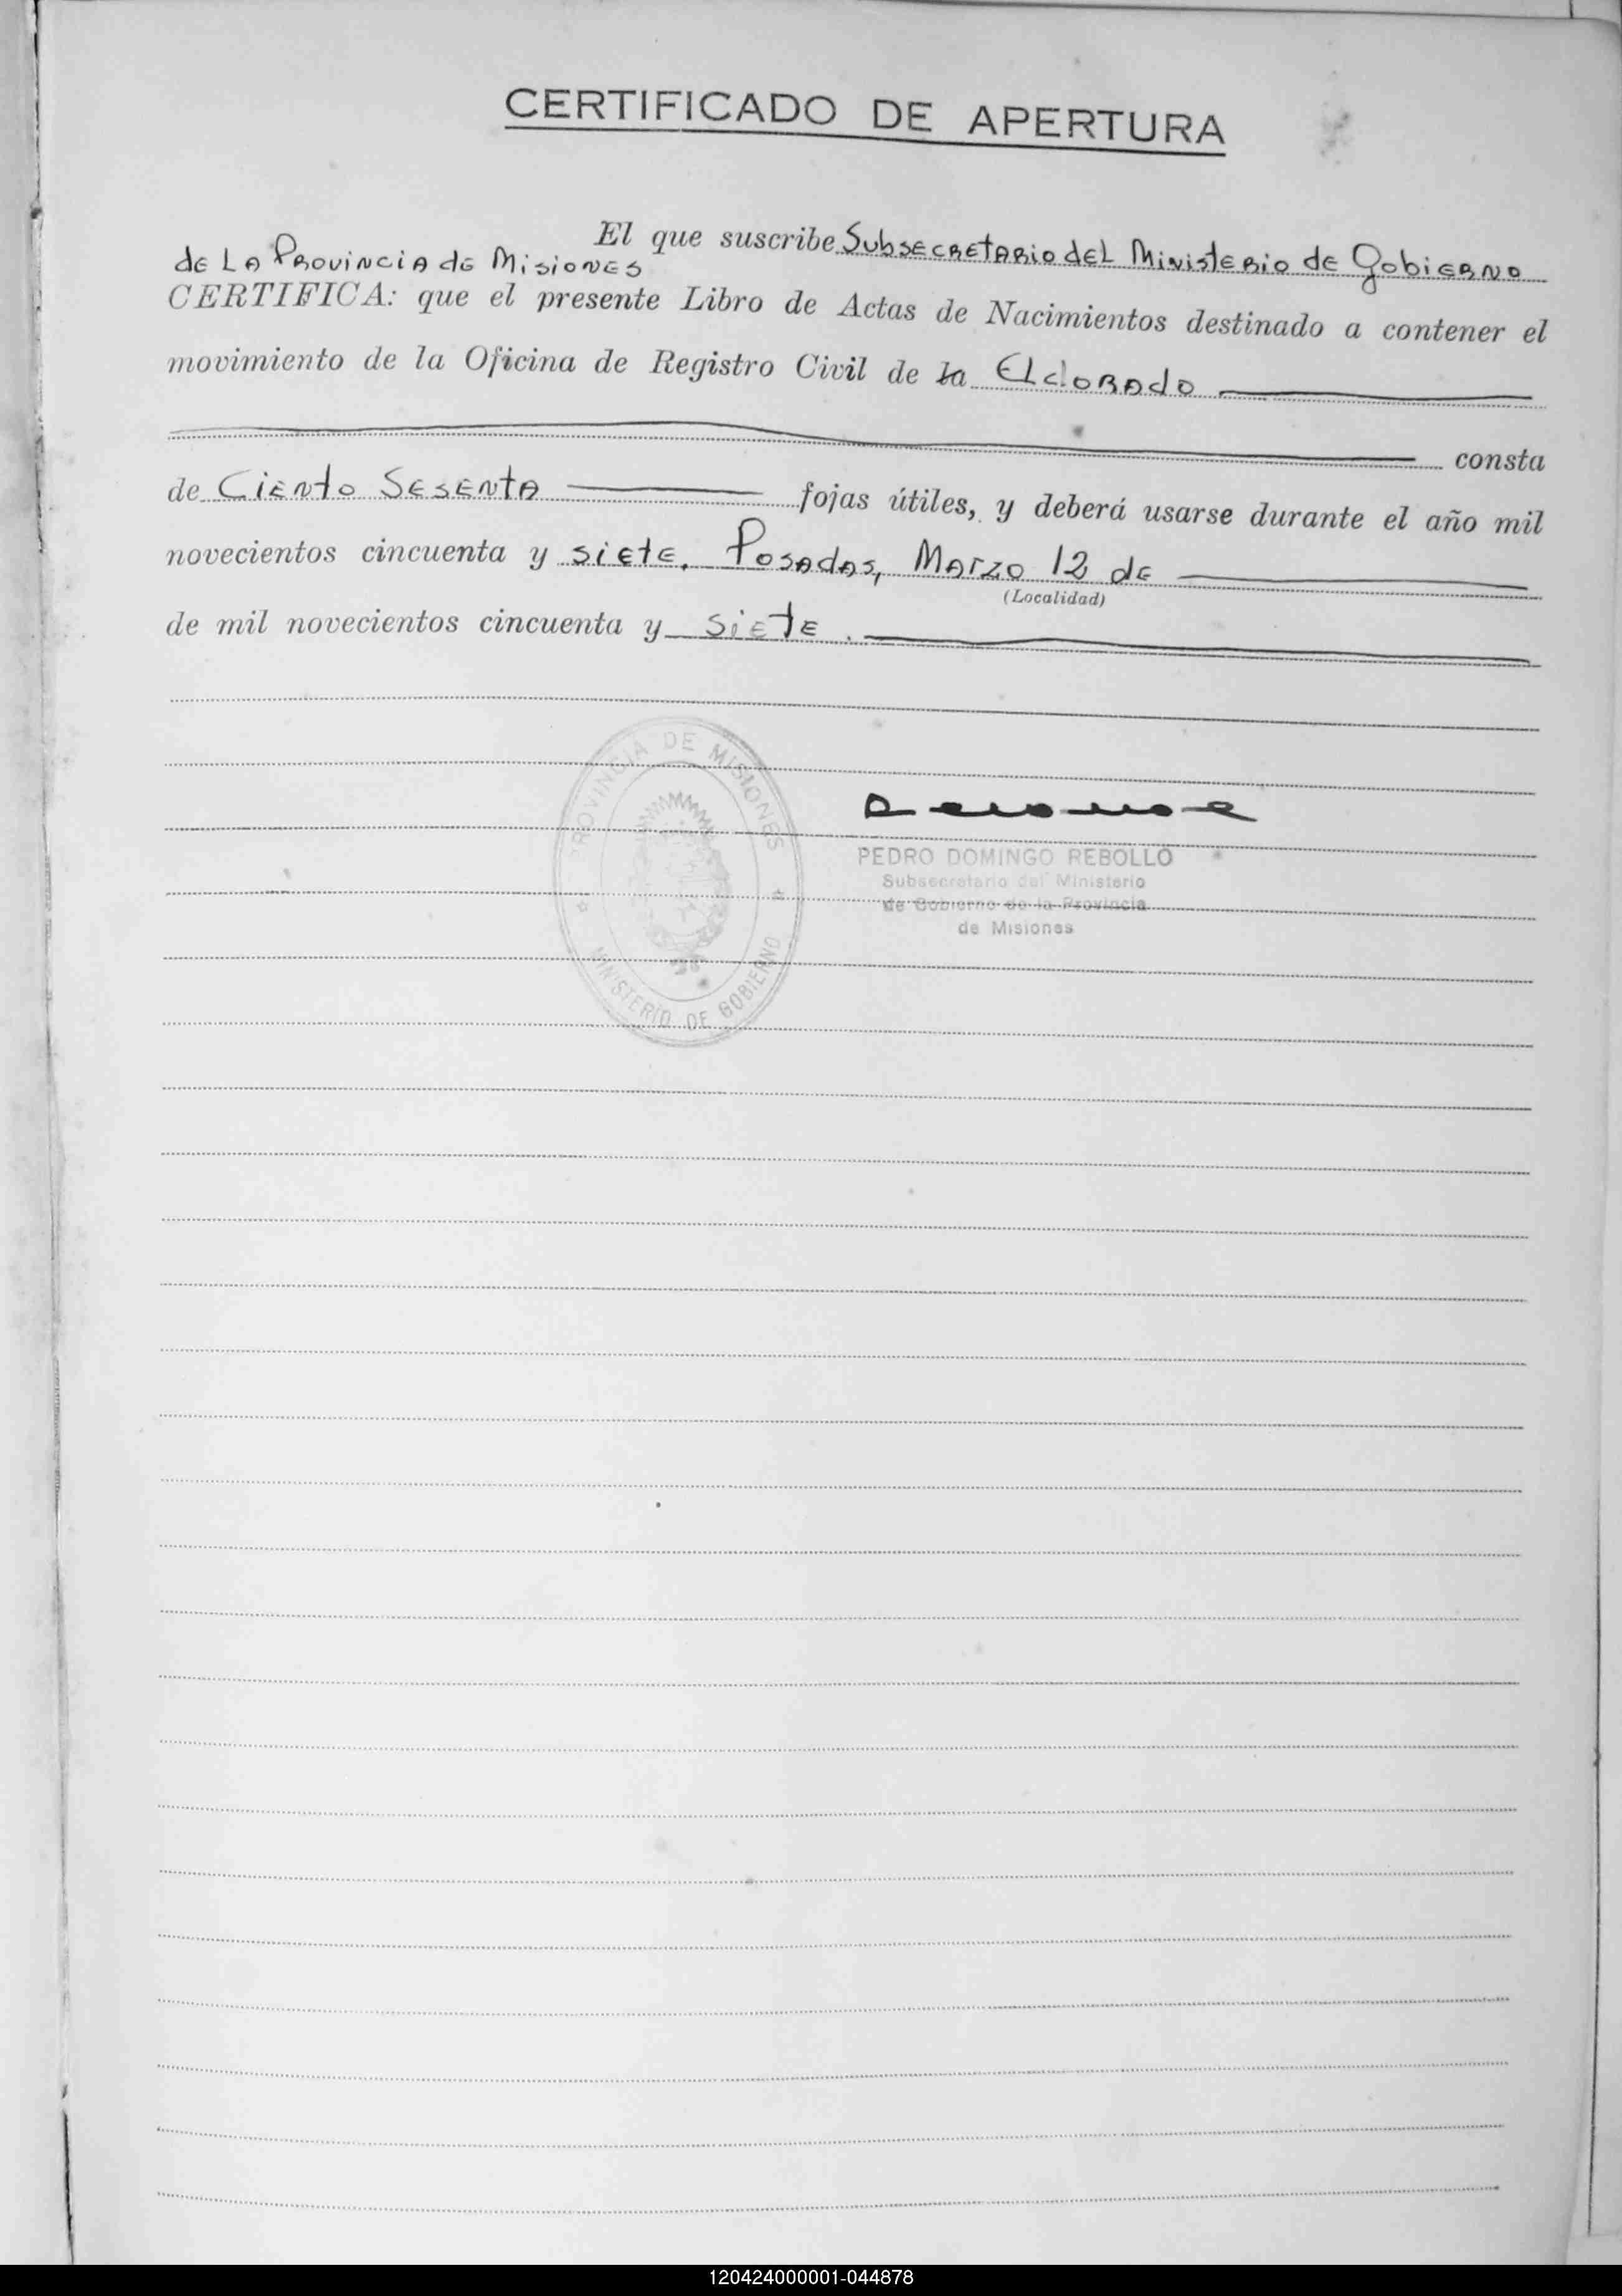 CERTIFICADO DE APERTURA
El que suscribe Subsecretario del Ministerio de Gobierno
de La Provincia de Misiones
CERTIFICA: que el presente Libro de Actas de Nacimientos destinado a contener el
movimiento de la Oficina de Registro Civil de la Eldorado
consta
de Ciento Sesenta fojas útiles, y deberá usarse durante el año mil
novecientos cincuenta y siete. Posadas, Marzo 12 de
(Localidad)
de mil novecientos cincuenta y siete.
PROVINCIA DE MISIONES
MINISTERIO DE GOBIERNO
PEDRO DOMINGO REBOLLO
Subsecretario del Ministerio
de Gobierno de la Provincia
de Misiones
120424000001-044878